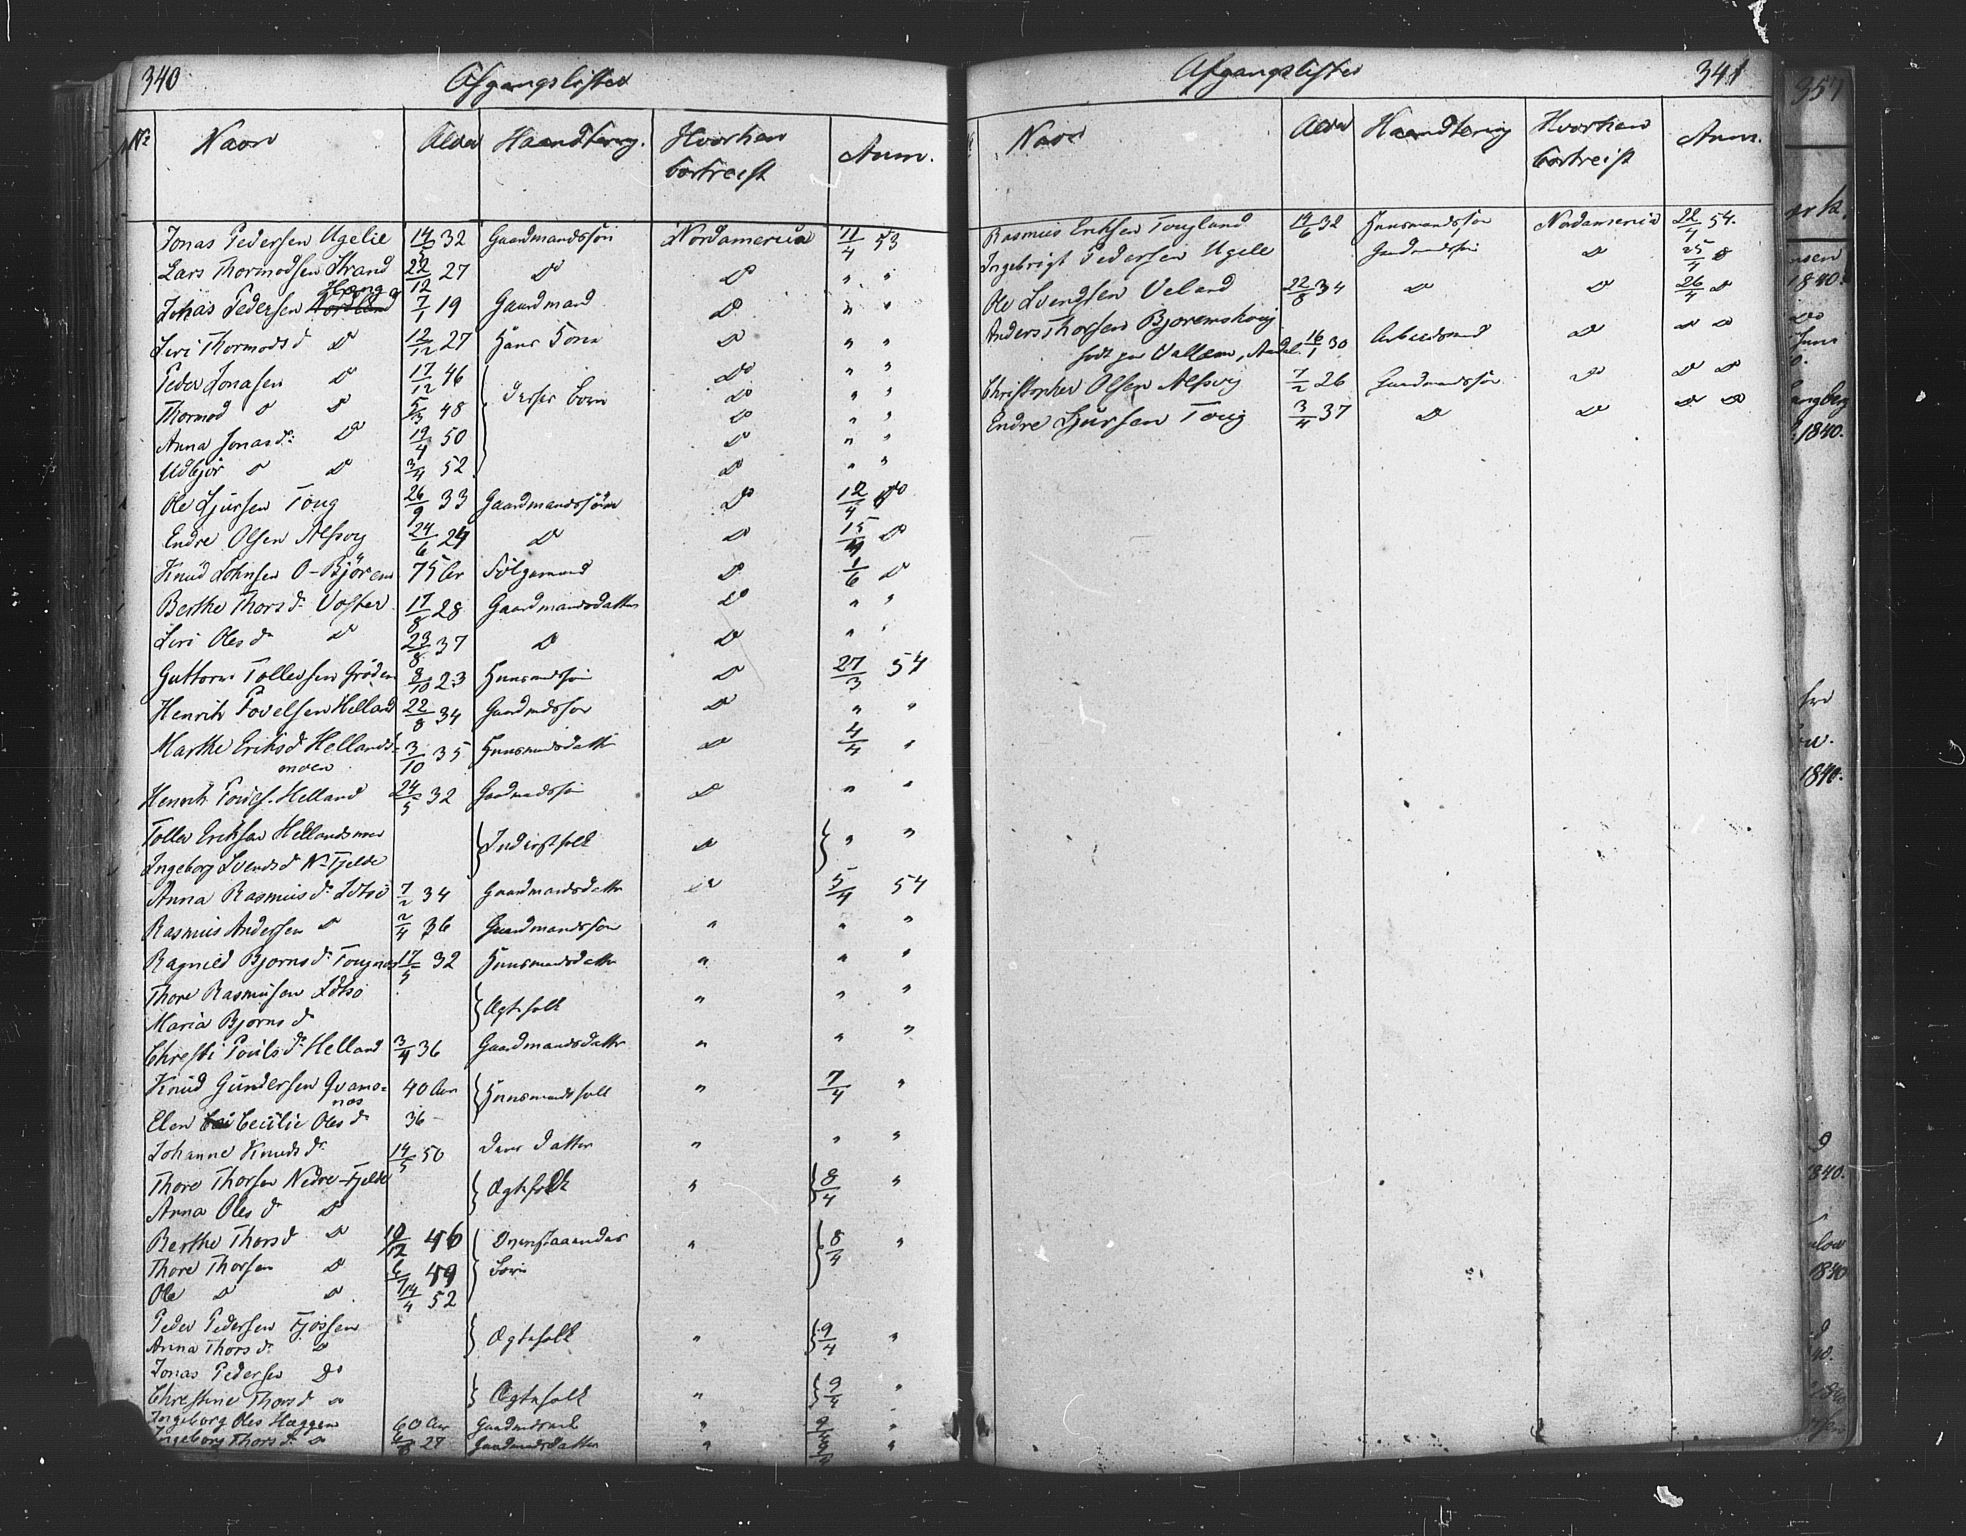 340 Afgangslister
No Navn Alder Haandtering. Hvorhen bortreist Anm.
Jonas Pedersen Ugelie 14/5 32 Gaardmandssøn Nordamerica 11/4 53
Lars Thormodsen Strand 22/12 27 do do " "
Hauge
Johas Pedersen 7/1 19 Gaardmand do " "
Siri Thormodsd do 12/12 27 Hans Kone do " "
Peder Jonasen do 17/12 46 do " "
Thormod do do 5/3 48 Deres børn do " "
Anna Jonasdr do 19/4 50 do " "
Udbjør do do 3/4 52 do " "
Ole Sjursen Toug 26/9 33 Gaardmandssøn do 12/4 do
Endre Olsen Alfsvog 24/6 24 do do 15/4 do
Knud Johnsen O-Bjørem 75 Aar Følgemand do 1/6 do
Berthe Thorsdr Voster 17/8 28 Gaardmandsdatter do " "
Siri Olesdr do 23/8 37 do do " "
Guttorm Tollevsen Grøden 8/10 23 Huusmandssøn do 27/3 54
Henrik Povelsen Helland 22/8 34 Gaardmdssøn do " "
Marthe Eriksd Hellands- 3/10 35 Huusmandsdatter do 4/4 "
moen
Henrik Povels. Helland 24/5 32 Gaardmandssøn do " "
Tollev Eriksen Hellandsmoen Inderstfolk do " "
Ingeborg Svendsd Nr Fjelde
Anna Rasmusdr Lotsø 7/2 34 Gaardmandsdatter do 5/4 54
Rasmus Andersen do 2/4 36 Gaardmandssøn " " "
Ragnild Bjornsdr Tougnes 17/5 32 Huusmandsdatter " " "
Thore Rasmusen Lotsø Ægtefolk " " "
Maria Bjornsdr
Christi Poulsdr Helland 3/4 36 Gaardmandsdatter " " "
Knud Gundersen Qvams- 40 Aar Huusmandsfolk " 7/4 "
nes
Elen Cecilie Olesdr 36 -
Johanne Knudsdr 14/5 50 deres datter " " "
Thore Thorsen Nedre-Fjelde Ægtefolk " 8/4 "
Anna Olesdr do
Berthe Thorsd do 10/12 46 Ovenstaaendes " 8/4 "
Thore Thorsen do 49 børn
Ole do do 14/4 52
Peder Pedersen Fjøssen Ægtefolk " 9/4 "
Anna Thorsdr do
Jonas Pedersen do
Christine Thorsdr do Ægtefolk " 9/4 "
Ingeborg Oles Hæggen 60 Aar " 9/4 "
Ingeborg Thorsdr do 27 Gaardmandsdatter " "
Afgangslister 341
Navn Alder Haandtering Hvorhen bortreist Anm.
Rasmus Eriksen Tougland 19/6 32 Huusmandssøn Nordamerica 22/4 54.
Ingebrigt Pedersen Ugelie Gaardmandssøn do 25/4 do
Ole Svendsen Veland 22/8 34 do do 26/4 do
Anders Thorsen Bjoremshoug
født paa Vallem, Aardal. 16/1 30 Arbeidsmand do do do
Christopher Olsen Alfsvog 7/2 26 Gaardmandssøn do do do
Endre Sjursen Toug 3/4 37 do do do do
357
1840.
1840.
1840.
1840.
1840